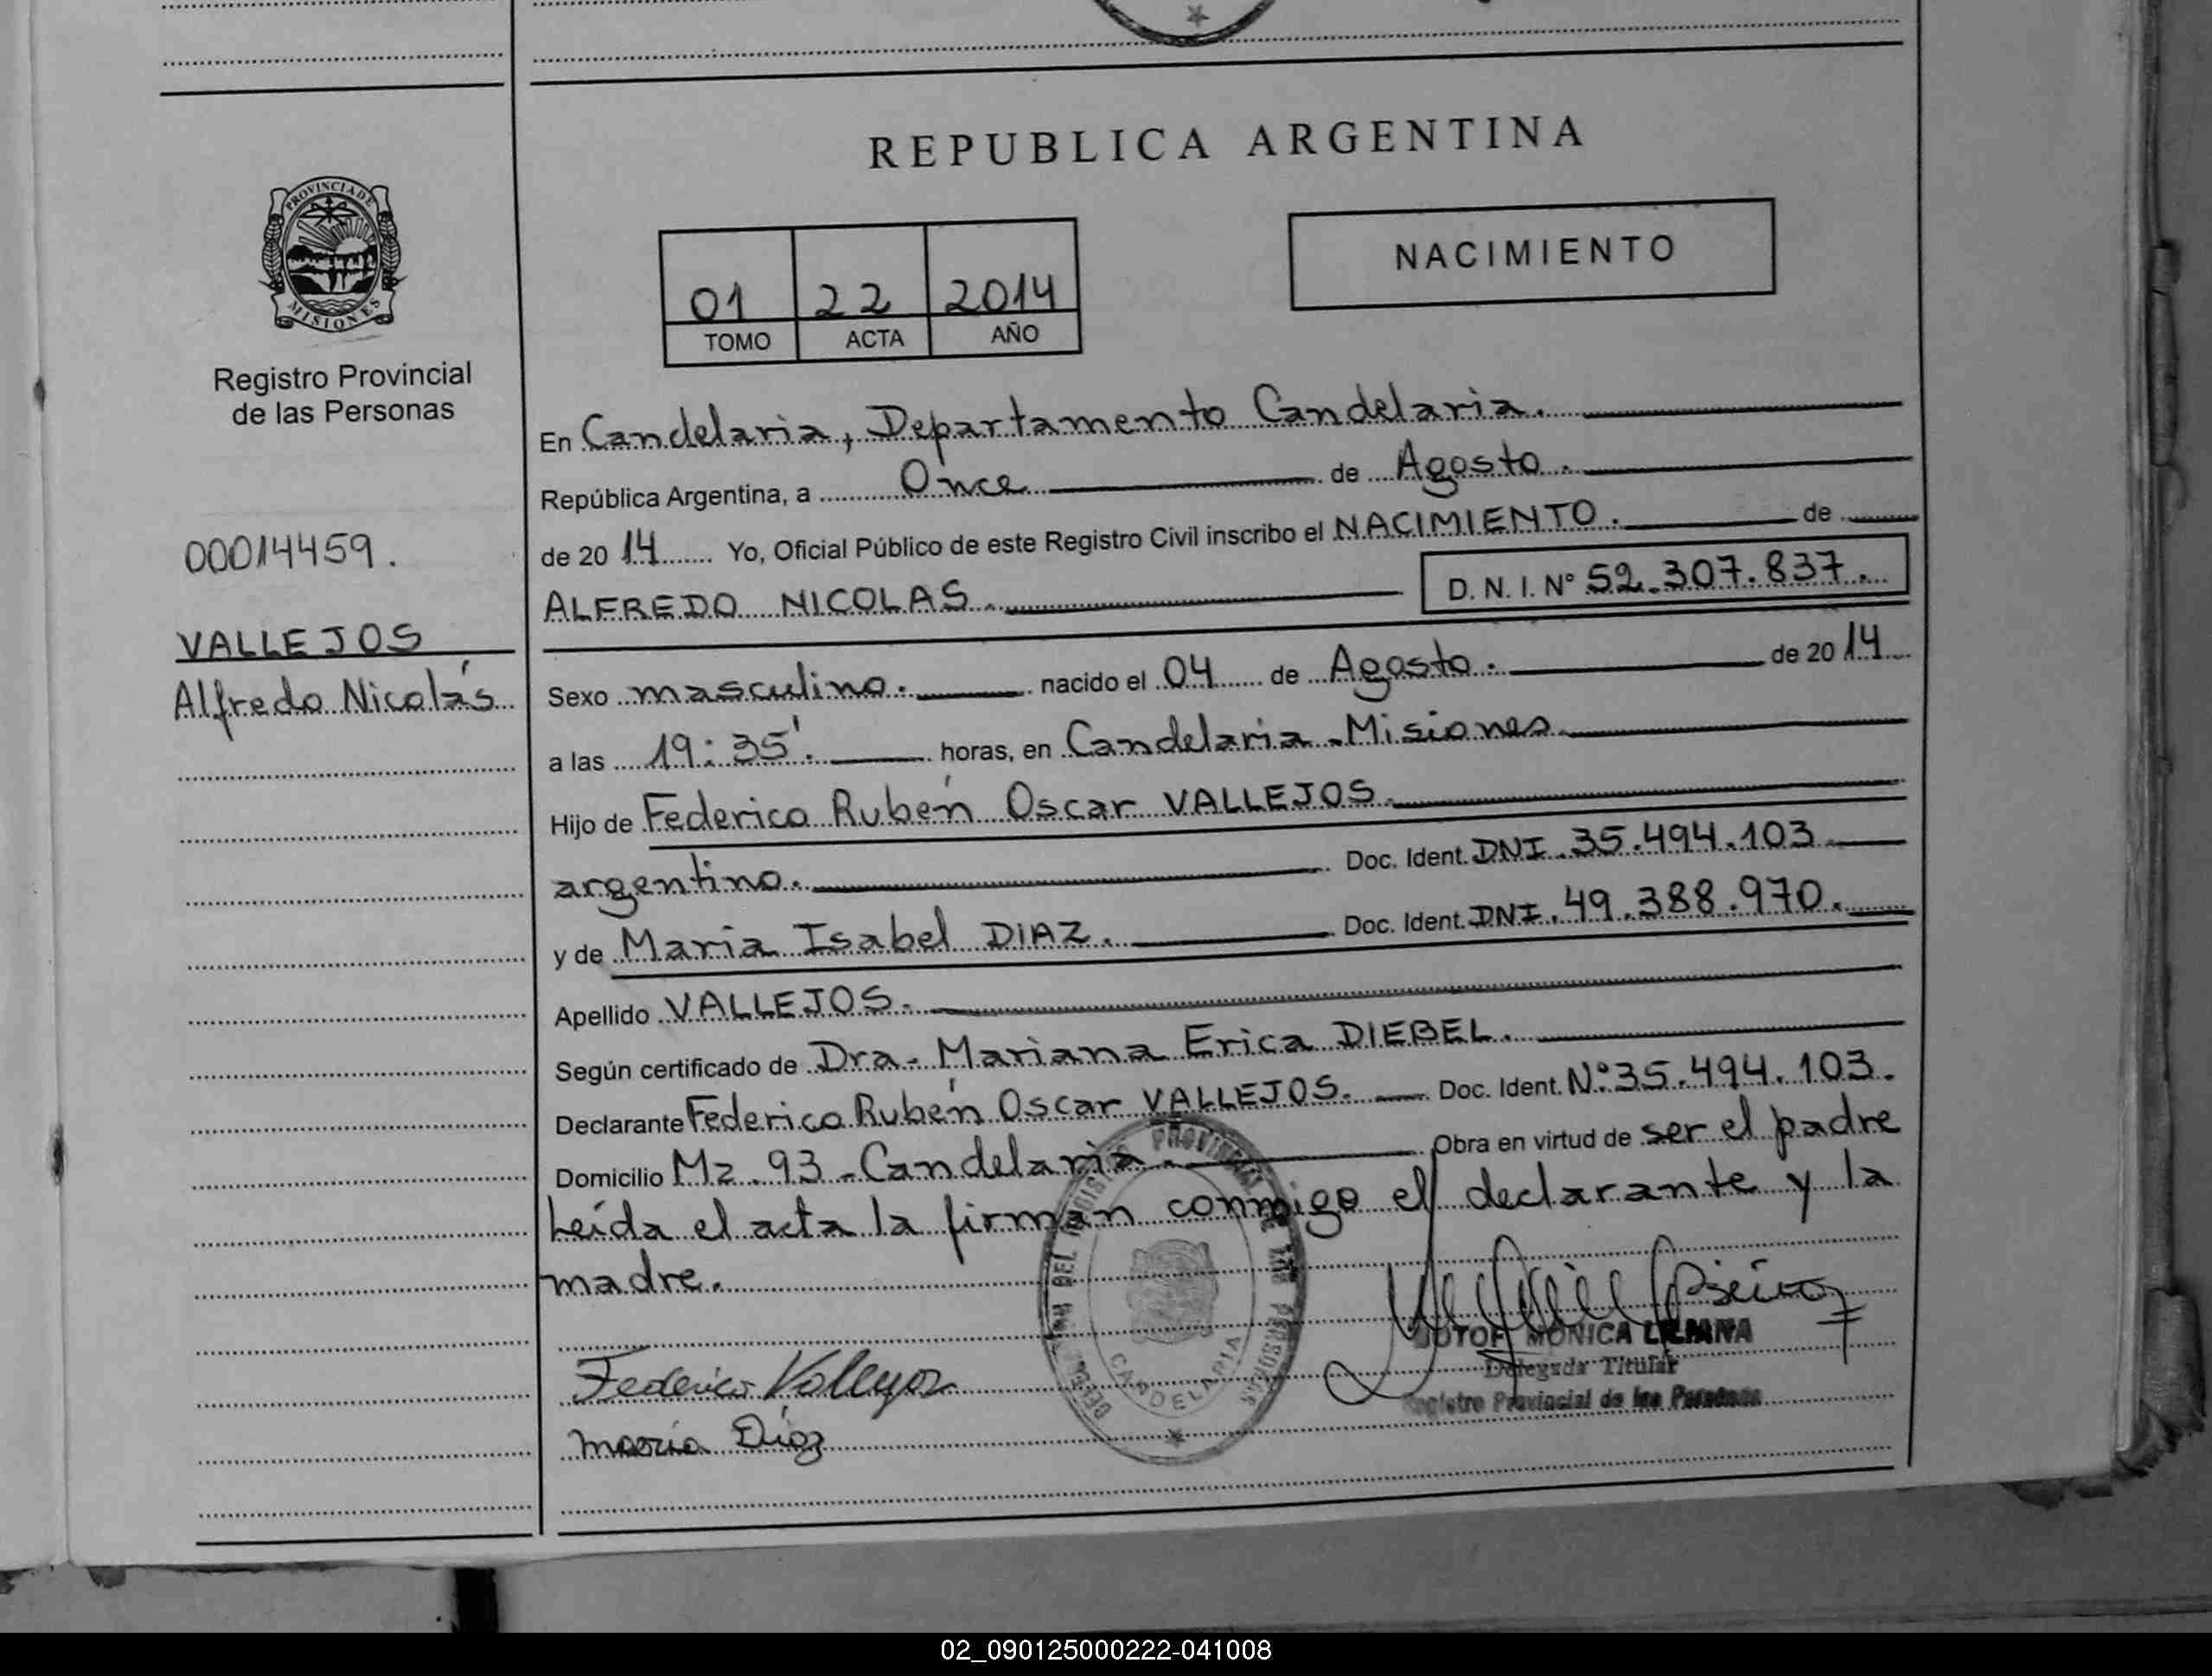 REPUBLICA ARGENTINA
PROVINCIA DE
MISIONES
Registro Provincial
de las Personas
00014459.
VALLEJOS
Alfredo Nicolás
01 22 2014
TOMO ACTA AÑO
NACIMIENTO
En Candelaria, Departamento Candelaria.
República Argentina, a Once de Agosto.
de 2014 Yo, Oficial Público de este Registro Civil inscribo el NACIMIENTO. de
ALFREDO NICOLAS. D. N. I. N° 52.307.837.
Sexo masculino. nacido el 04 de Agosto. de 2014
a las 19:35'. horas, en Candelaria-Misiones.
Hijo de Federico Rubén Oscar VALLEJOS.
argentino. Doc. Ident. DNI.35.494.103.
y de Maria Isabel DIAZ. Doc. Ident. DNI.49.388.970.
Apellido VALLEJOS.
Según certificado de Dra. Mariana Erica DIEBEL.
Declarante Federico Rubén Oscar VALLEJOS. Doc. Ident. N°35.494.103.
Domicilio Mz. 93-Candelaria. Obra en virtud de ser el padre
Leída el acta la firman conmigo el declarante y la
madre.
Federico Vallejos
maria Diaz
CANDELARIA
MONICA LILIANA
Delegada Titular
Registro Provincial de las Personas
02_090125000222-041008